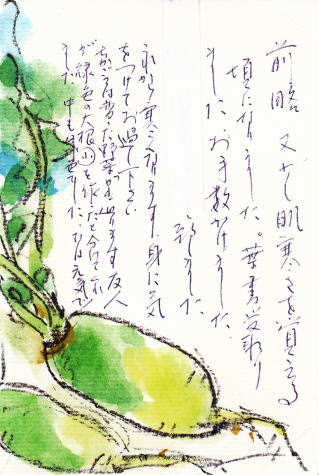 前略 又少し肌寒さを覚える
頃になりました。葉書受取り
ました お手数かけました。
致しました。
これから寒くなります 身に気
をつけてお過し下さい
変った野菜 送ります 友人
が緑色の大根(小)を作ったと分けてくれ
ました 中も緑色でした